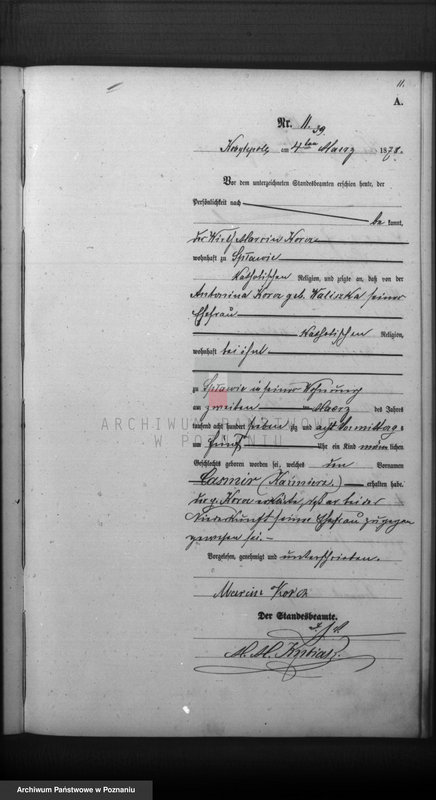 11.
A.
Nr. 11.
am 4ten Maerz 1878.
Vor dem unterzeichneten Standesbeamten erschien heute, der
Persönlichkeit nach
be kannt,
der Wirth Marcin Kora
wohnhaft zu Spławie
katholischen Religion, und zeigte an, daß von der
Antonina Kora geb. Waliszka seiner
Ehefrau
katholischen Religion,
wohnhaft bei ihm
zu Spławie in seiner Wohnung
am zweiten Maerz des Jahres
tausend acht hundert sieben zig und acht Vormittags
um fünf Uhr ein Kind männ lichen
Geschlechts geboren worden sei, welches den Vornamen
Casmir (Kazimierz.) erhalten habe.
der p. Kora erklärte, daß er bei der
Niederkunft seiner Ehefrau zugegen
gewesen sei.-
Vorgelesen, genehmigt und unterschrieben.
Marcin
Der Standesbeamte.
ARCHIWUM PAŃSTWOWE
W POZNANIU
Archiwum Państwowe w Poznaniu